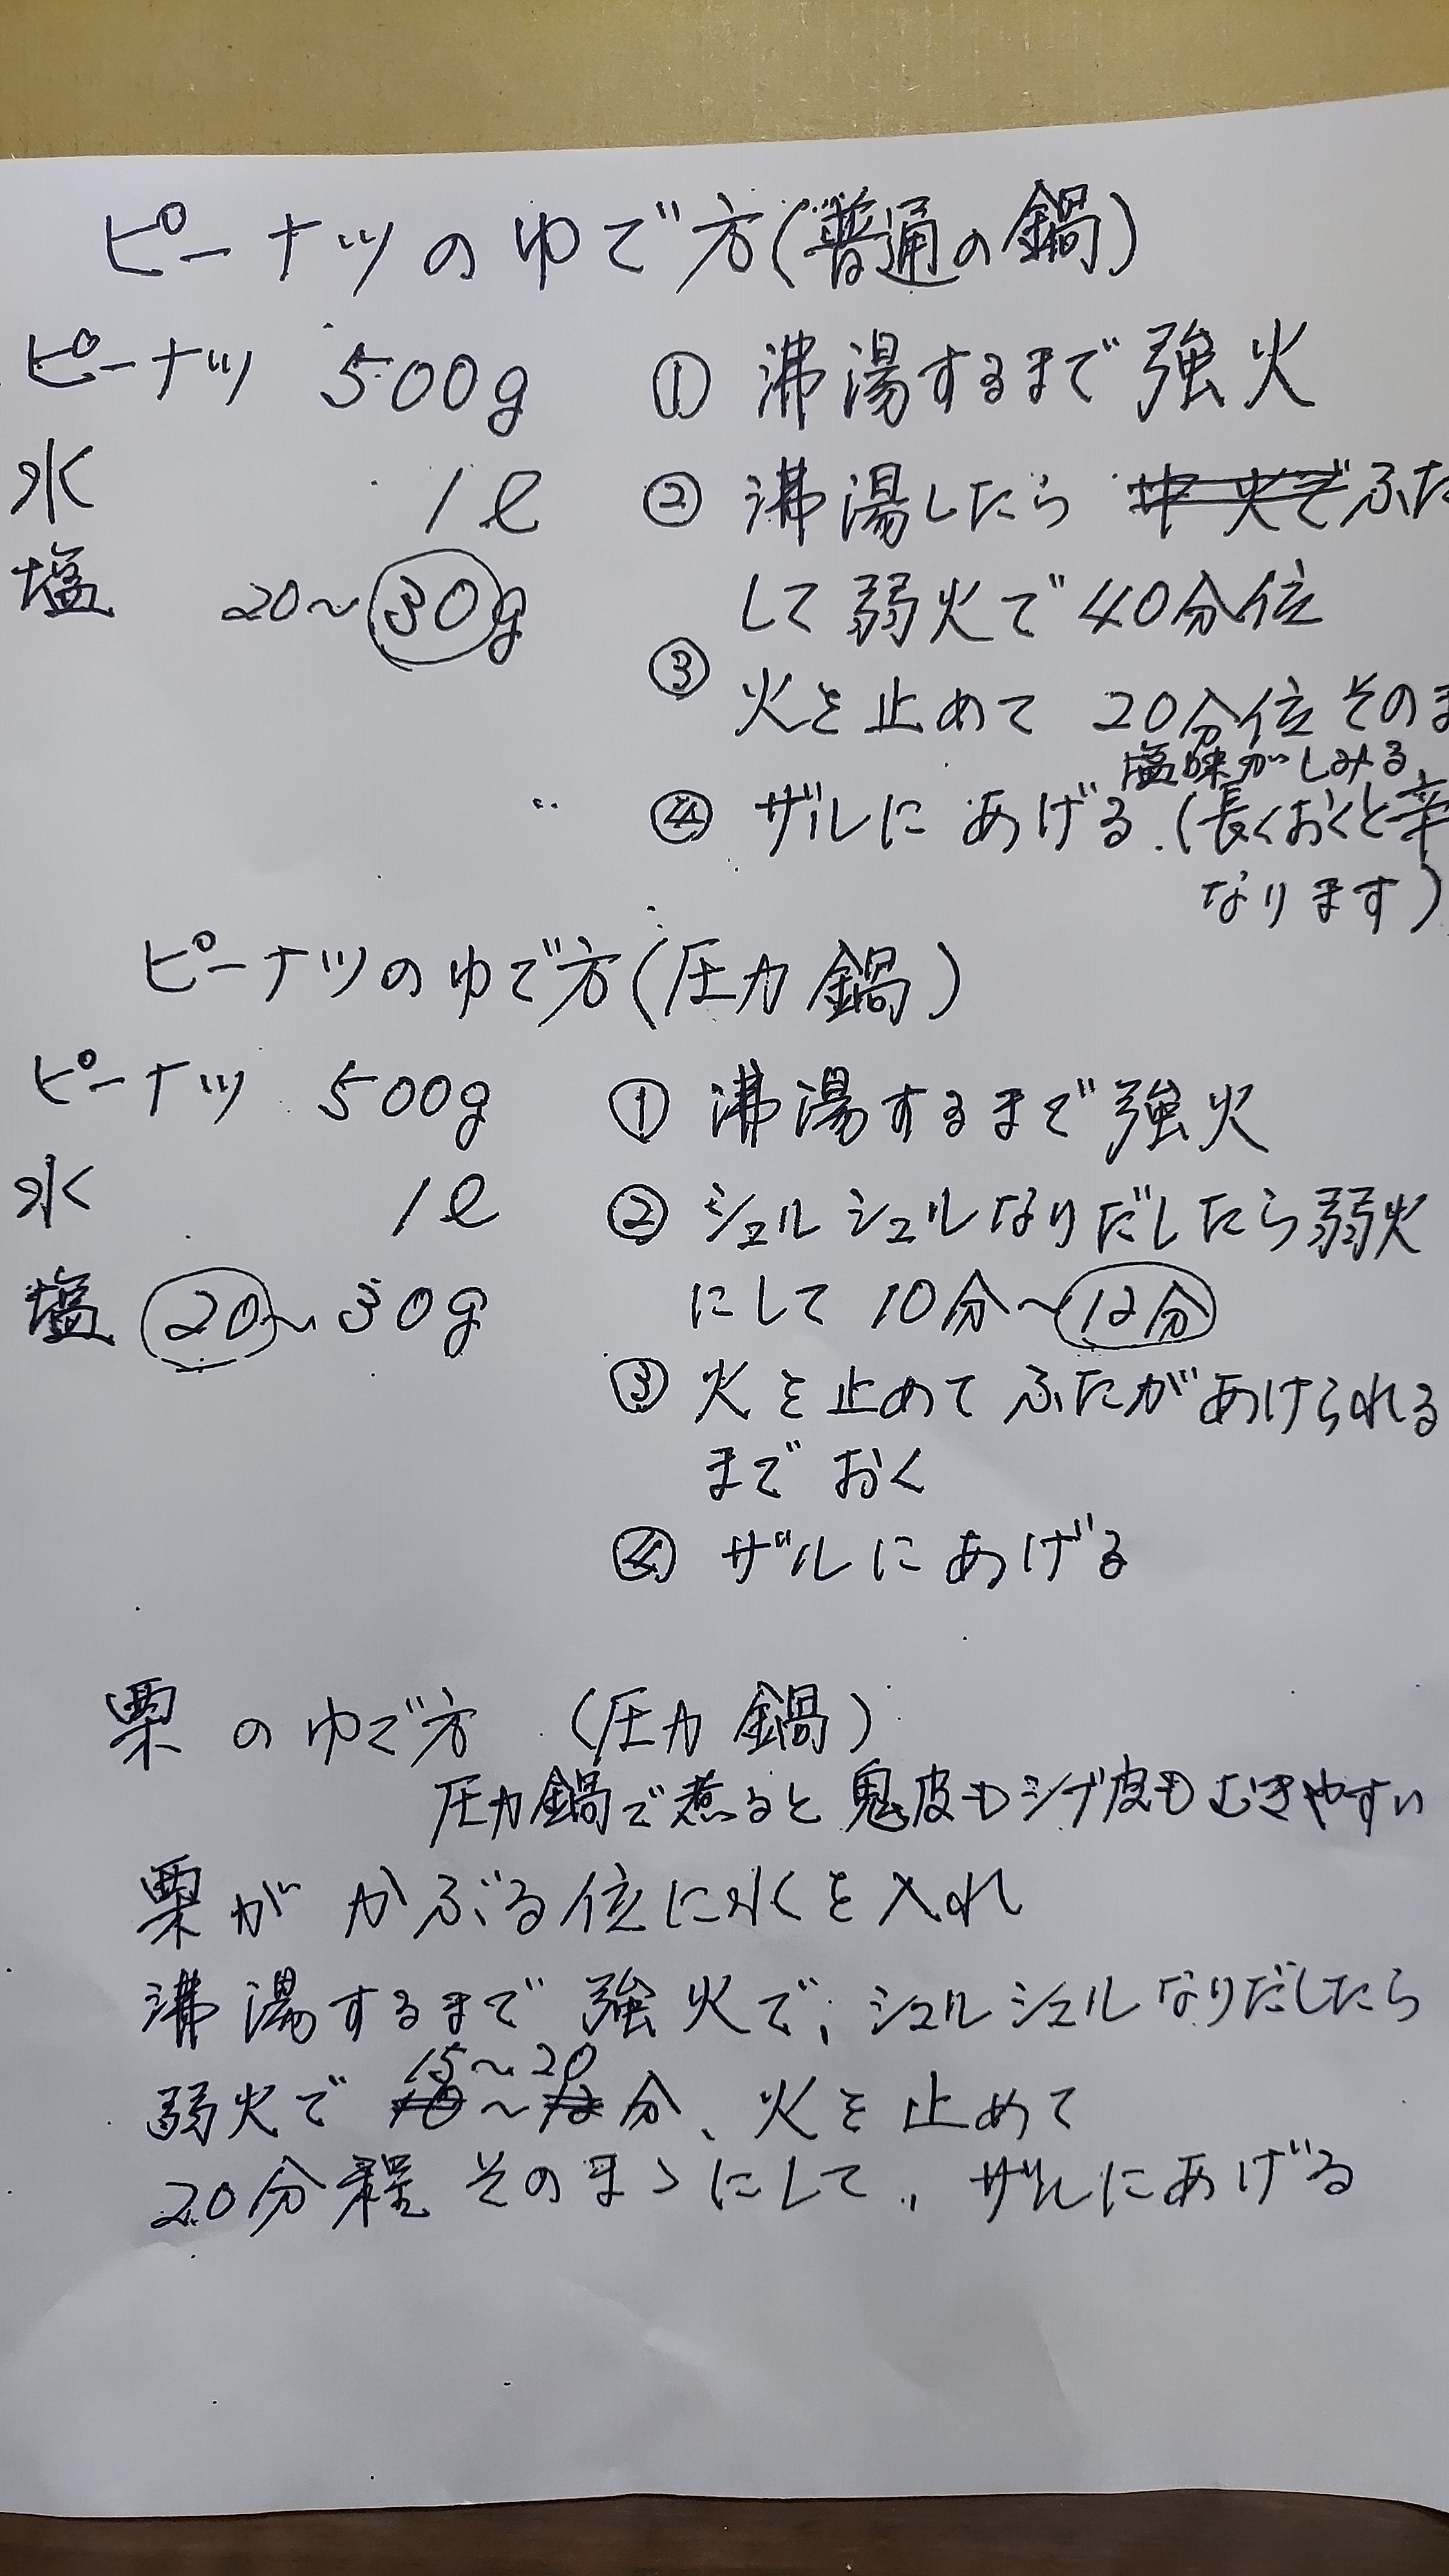 ピーナツのゆで方(普通の鍋)
ピーナツ 500g
水 1ℓ
塩 20〜30g
① 沸湯するまで強火
② 沸湯したら 中火でふた
して弱火で40分位
③ 火を止めて 20分位そのま
塩味がしみる
④ ザルにあげる.(長くおくと辛
なります)
ピーナツのゆで方(圧力鍋)
ピーナツ 500g
水 1ℓ
塩 20〜30g
① 沸湯するまで強火
② シュルシュルなりだしたら弱火
にして10分〜12分
③ 火を止めてふたがあけられる
までおく
④ ザルにあげる
栗のゆで方 (圧力鍋)
圧力鍋で煮ると鬼皮もシブ皮もむきやすい
栗がかぶる位に水を入れ
沸湯するまで強火で、シュルシュルなりだしたら
15〜20
弱火で 〜 分、火を止めて
20分程そのまゝにして、ザルにあげる